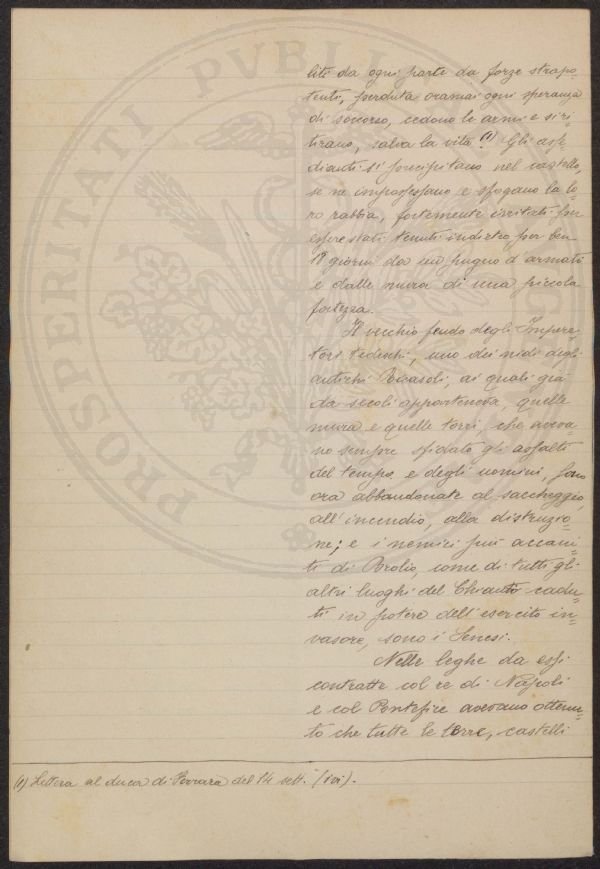 liti da ogni parte da forze strapo=
tenti, perduta oramai ogni speranza
di soccorso, cedono le armi e si ri=
tirano, salva la vita. (1) Gli asse=
dianti si precipitano nel castello,
se ne impossessano e sfogano la lo=
ro rabbia, fortemente irritati per
essere stati tenuti indietro per ben
18 giorni da un pugno d'armati
e dalle mura di una piccola
fortezza.
Il vecchio feudo degli Impera=
tori tedeschi, uno dei nidi degli
antichi Ricasoli, ai quali già
da secoli apparteneva, quelle
mura e quelle torri, che aveva=
no sempre sfidato gli assalti
del tempo e degli uomini, sono
ora abbandonate al saccheggio,
all'incendio, alla distruzio=
ne; e i nemici più accani=
ti di Brolio, come di tutti gli
altri luoghi del Chianti cadu=
ti in potere dell'esercito in=
vasore, sono i Senesi.
Nelle leghe da essi
contratte col re di Napoli
e col Pontefice avevano ottenu=
to che tutte le terre, castelli
(1) Lettera al duca di Ferrara del 14 sett. (ivi).
PROSPERITATI PVBLI